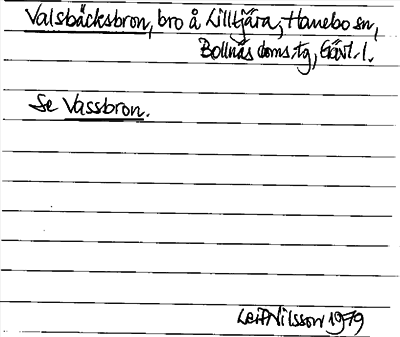 Valsbäcksbron, bro å Lilltjära, Hanebo sn,
Bollnäs doms.tg, Gävl. l.
Se Vassbron.
Leif Nilsson 1979